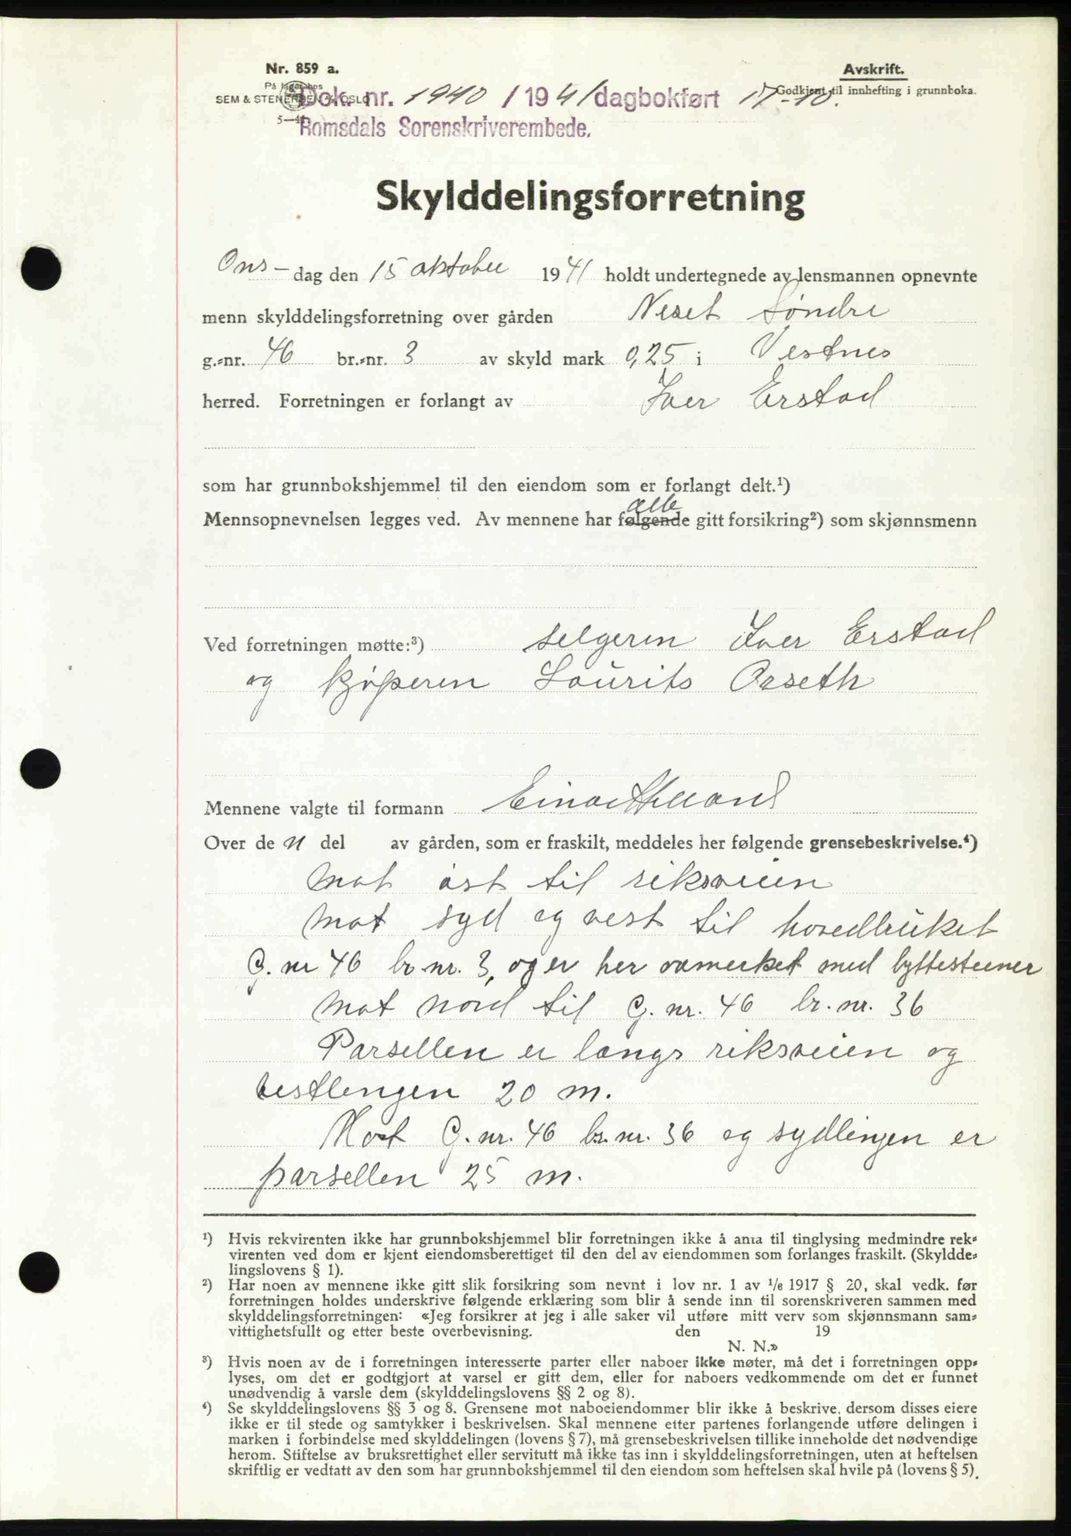 Nr. 859 a.
På lager hos
SEM & STENERSEN A/S, OSLO
5—41
Avskrift.
Godkjent til innhefting i grunnboka.
Dok. nr. 1940 / 1941 dagbokført 17-10.
Romsdals Sorenskriverembede.
Skylddelingsforretning
Ons- dag den 15 oktober 1941 holdt undertegnede av lensmannen opnevnte
menn skylddelingsforretning over gården Neset Søndre
g.-nr. 46 br.-nr. 3 av skyld mark 0,25 i Vestnes
herred. Forretningen er forlangt av Iver Erstad
som har grunnbokshjemmel til den eiendom som er forlangt delt.¹)
alle
Mennsopnevnelsen legges ved. Av mennene har følgende gitt forsikring²) som skjønnsmenn
Ved forretningen møtte:³) selgeren Iver Erstad
og kjøperen Lourits Oaseth
Mennene valgte til formann Einar Helland
Over de n del av gården, som er fraskilt, meddeles her følgende grensebeskrivelse.⁴)
Mot øst til riksveien
Mot syd og vest til hovedbruket
G. nr 46 br. nr. 3, og er her avmerket med byttesteiner
Mot nord til G. nr. 46 br. nr. 36
Parsellen er langs riksveien og
vestlengen 20 m.
Mot G. nr. 46 br. nr. 36 og sydlengen er
parsellen 25 m.
¹) Hvis rekvirenten ikke har grunnbokshjemmel blir forretningen ikke å anta til tinglysing medmindre rek-
virenten ved dom er kjent eiendomsberettiget til den del av eiendommen som forlanges fraskilt. (Skyldde-
lingslovens § 1).
²) Har noen av mennene ikke gitt slik forsikring som nevnt i lov nr. 1 av 1/6 1917 § 20, skal vedk. før
forretningen holdes underskrive følgende erklæring som blir å sende inn til sorenskriveren sammen med
skylddelingsforretningen: «Jeg forsikrer at jeg i alle saker vil utføre mitt verv som skjønnsmann sam-
vittighetsfullt og etter beste overbevisning. den 19
N. N.»
³) Hvis noen av de i forretningen interesserte parter eller naboer ikke møter, må det i forretningen opp-
lyses, om det er godtgjort at varsel er gitt dem, eller for naboers vedkommende om det er funnet
unødvendig å varsle dem (skylddelingslovens §§ 2 og 8).
⁴) Se skylddelingslovens §§ 3 og 8. Grensene mot naboeiendommer blir ikke å beskrive, dersom disses eiere
ikke er til stede og samtykker i beskrivelsen. Skal mennene etter partenes forlangende utføre delingen i
marken i forbindelse med skylddelingen (lovens § 7), må grensebeskrivelsen tillike inneholde det nødvendige
herom. Stiftelse av bruksrettighet eller servitutt må ikke tas inn i skylddelingsforretningen, uten at heftelsen
skriftlig er vedtatt av den som har grunnbokshjemmel til den eiendom som heftelsen skal hvile på (lovens § 5).